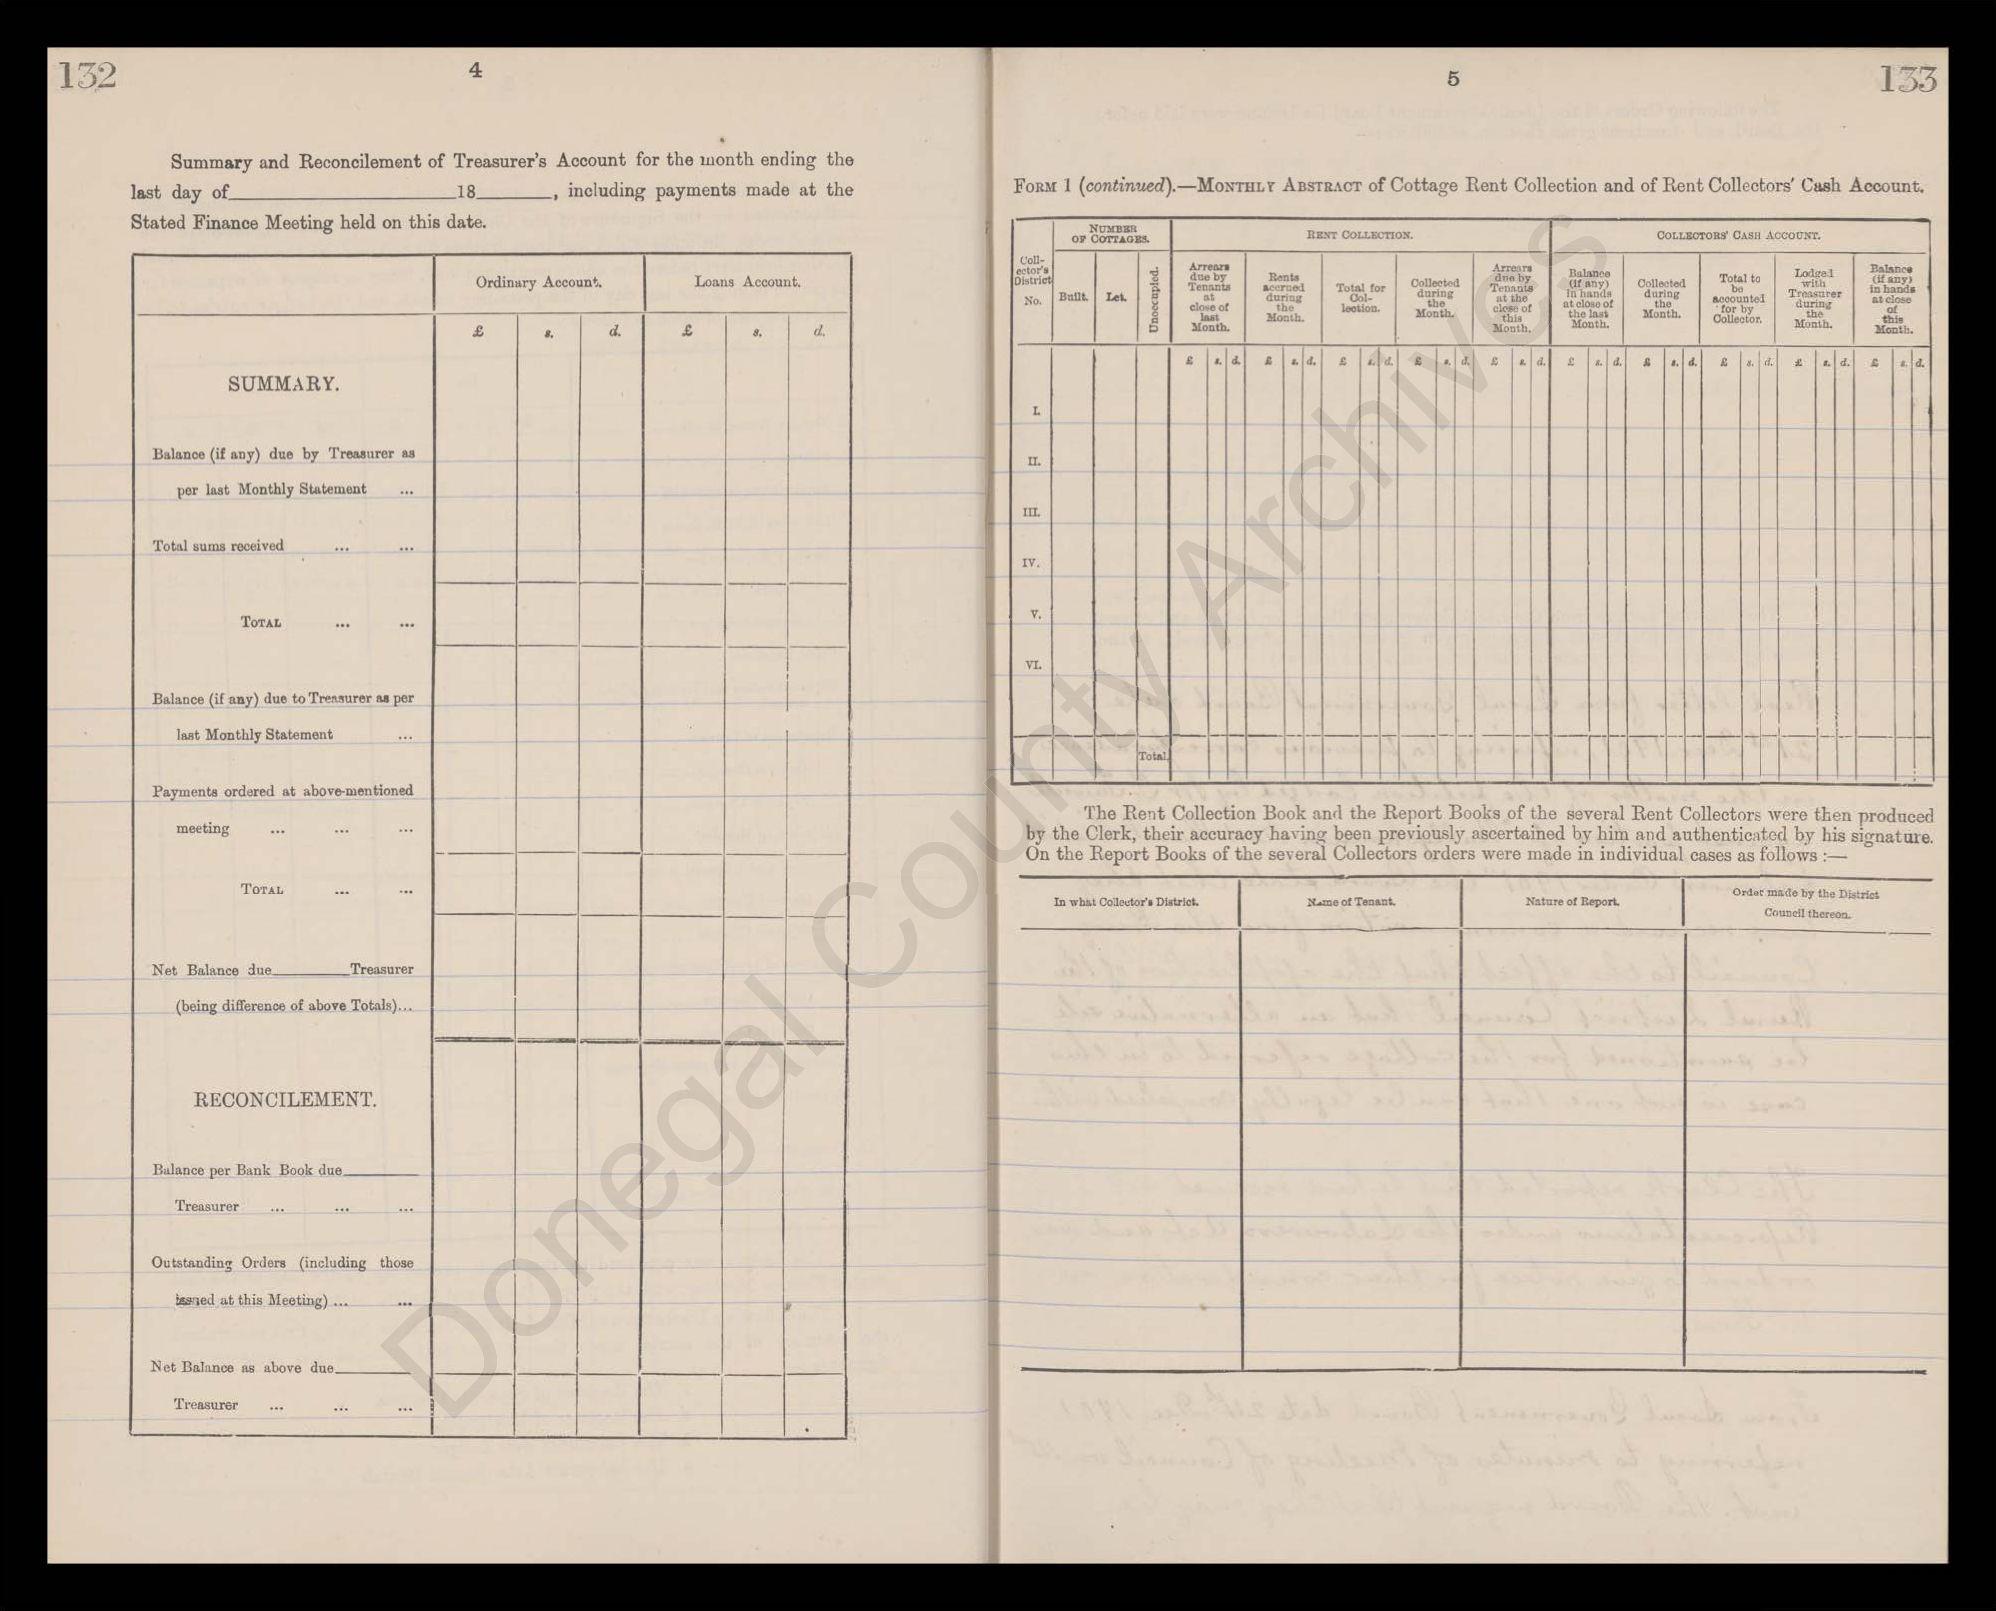 132
4
Summary and Reconcilement of Treasurer's Account for the month ending the
last day of 18 , including payments made at the
Stated Finance Meeting held on this date.
Ordinary Account. Loans Account.
£ s. d. £ s. d.
SUMMARY.
Balance (if any) due by Treasurer as
per last Monthly Statement ...
Total sums received ... ...
TOTAL ... ...
Balance (if any) due to Treasurer as per
last Monthly Statement ...
Payments ordered at above-mentioned
meeting ... ... ...
TOTAL ... ...
Net Balance due Treasurer
(being difference of above Totals)...
RECONCILEMENT.
Balance per Bank Book due
Treasurer ... ... ...
Outstanding Orders (including those
issued at this Meeting) ... ...
Net Balance as above due
Treasurer ... ... ...
5
133
FORM 1 (continued).—MONTHLY ABSTRACT of Cottage Rent Collection and of Rent Collectors' Cash Account.
Coll-
ector's
District
No.
NUMBER
OF COTTAGES.
Built. Let. Unoccupied.
RENT COLLECTION.
Arrears
due by
Tenants
at
close of
last
Month.
Rents
accrued
during
the
Month.
Total for
Col-
lection.
Collected
during
the
Month.
Arrears
due by
Tenants
at the
close of
this
Month.
COLLECTORS' CASH ACCOUNT.
Balance
(if any)
in hands
at close of
the last
Month.
Collected
during
the
Month.
Total to
be
accounted
for by
Collector.
Lodged
with
Treasurer
during
the
Month.
Balance
(if any)
in hands
at close
of
this
Month.
£ s. d. £ s. d. £ s. d. £ s. d. £ s. d. £ s. d. £ s. d. £ s. d. £ s. d. £ s. d.
I.
II.
III.
IV.
V.
VI.
Total.
The Rent Collection Book and the Report Books of the several Rent Collectors were then produced
by the Clerk, their accuracy having been previously ascertained by him and authenticated by his signature.
On the Report Books of the several Collectors orders were made in individual cases as follows :—
In what Collector's District. Name of Tenant. Nature of Report. Order made by the District
Council thereon.
Donegal County Archives